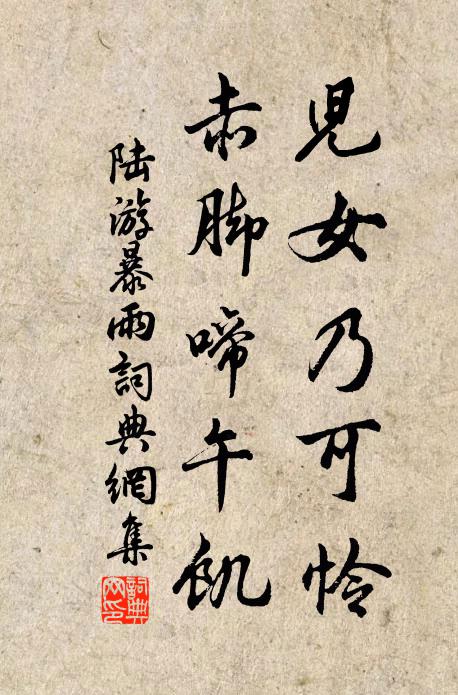 兒女乃可怜
赤脚啼午飢
陆游暴雨詞典網集
詞典网印